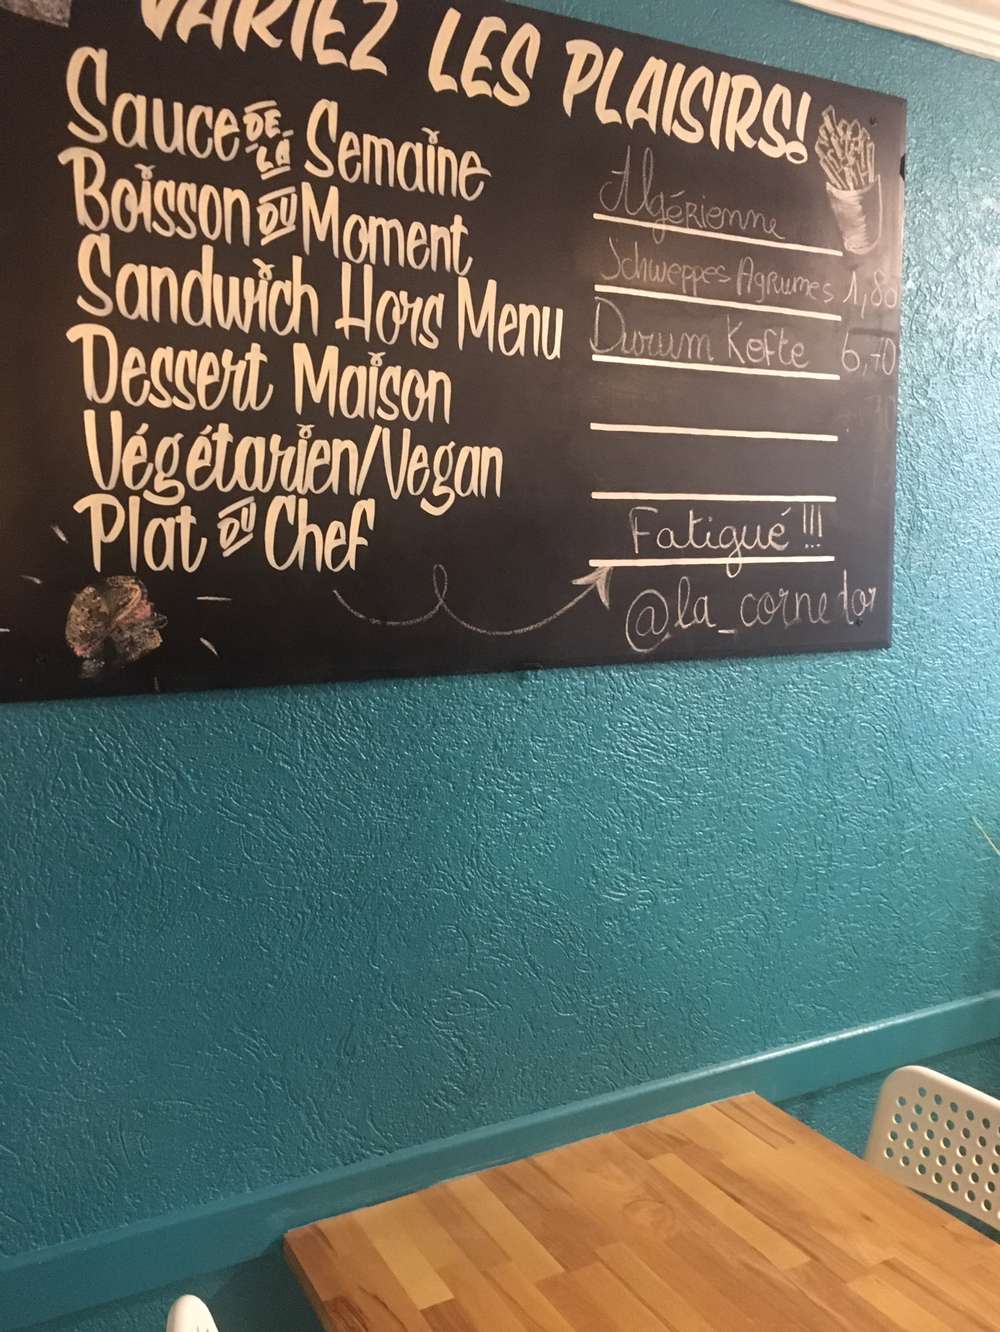 VARIEZ LES PLAISIRS!
Sauce DE LA Semaine Algérienne
Boisson DU Moment Schweppes Agrumes 1,80
Sandwich Hors Menu Durum Kefte 6,70
Dessert Maison
Végétarien/Vegan
Plat DU Chef Fatigué !!!
@la_cornedor